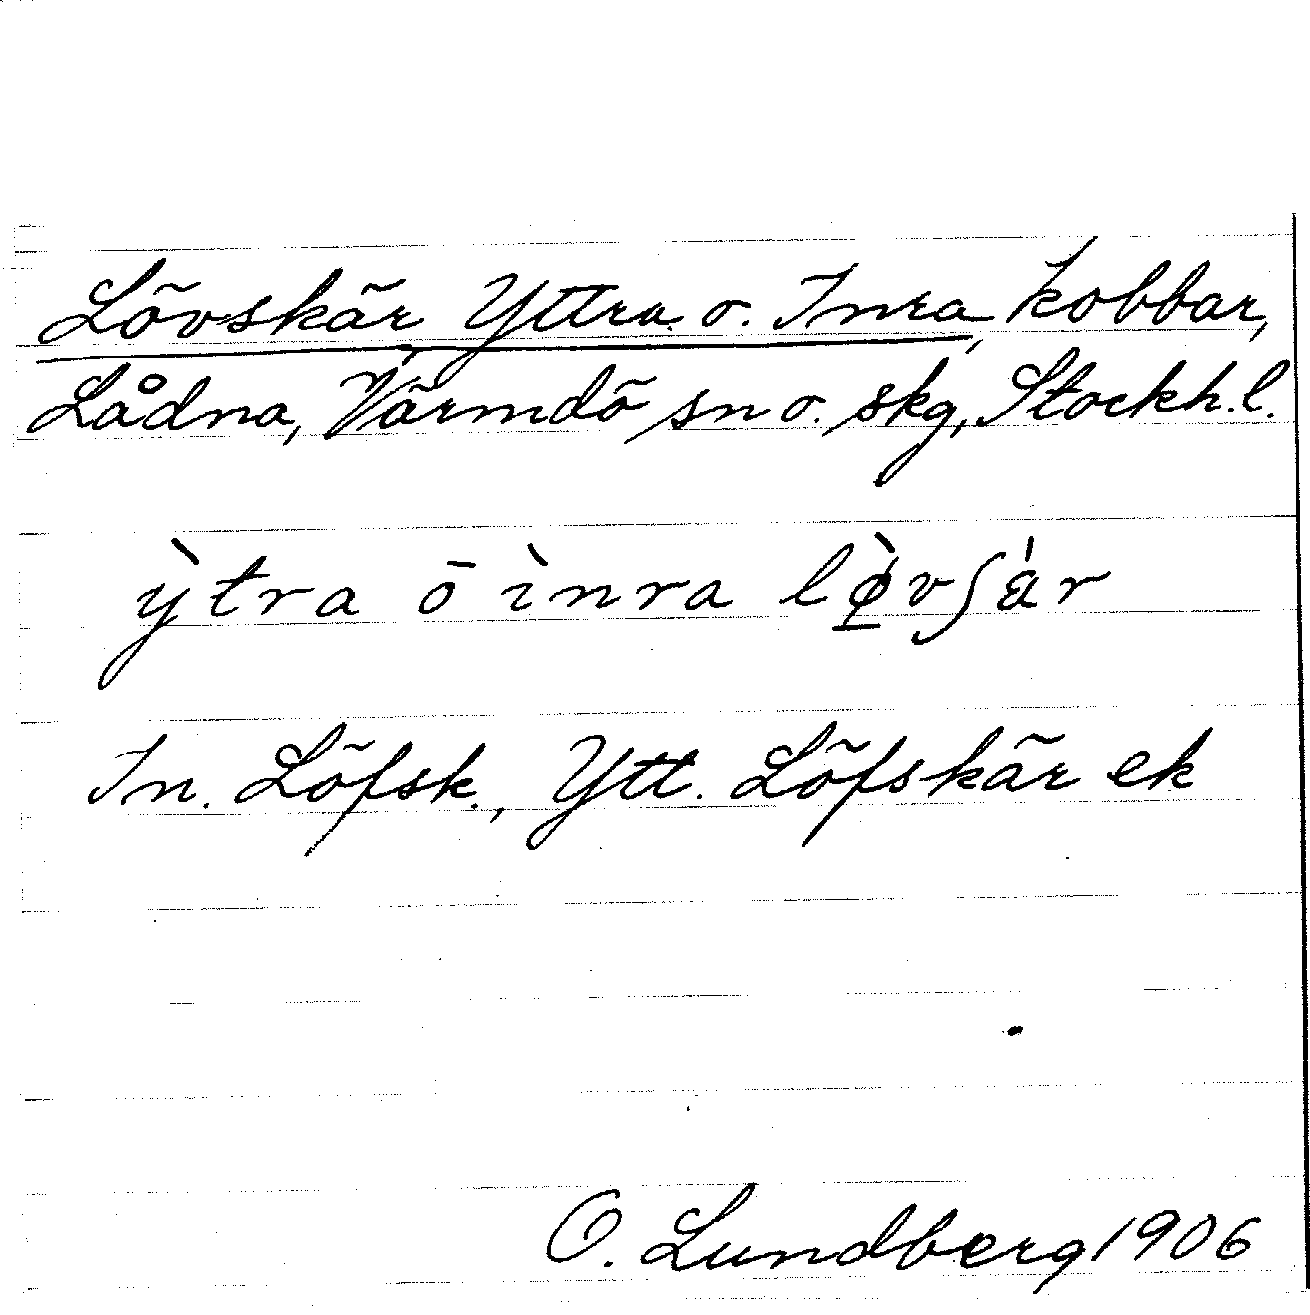 Lövskär, Yttra o. Inra, kobbar,
Lådna, Värmdö sn o. skg, Stockh. l.
ỳtra ō ìnra lø̱̀vʃá̤r
In. Löfsk., Ytt. Löfskär ek
O. Lundberg 1906